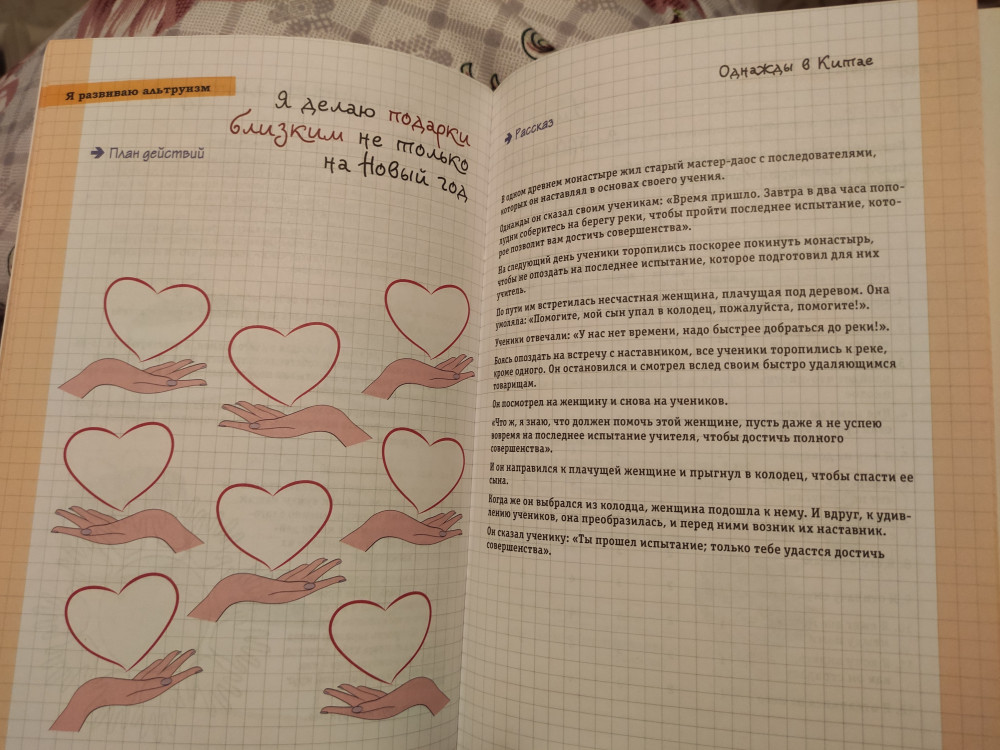 Я развиваю альтруизм
Я делаю подарки
близким не только
на Новый год
План действий
Однажды в Китае
Рассказ
В одном древнем монастыре жил старый мастер-даос с последователями,
которых он наставлял в основах своего учения.
Однажды он сказал своим ученикам: «Время пришло. Завтра в два часа попо-
лудни соберитесь на берегу реки, чтобы пройти последнее испытание, кото-
рое позволит вам достичь совершенства».
На следующий день ученики торопились поскорее покинуть монастырь,
чтобы не опоздать на последнее испытание, которое подготовил для них
учитель.
По пути им встретилась несчастная женщина, плачущая под деревом. Она
умоляла: «Помогите, мой сын упал в колодец, пожалуйста, помогите!».
Ученики отвечали: «У нас нет времени, надо быстрее добраться до реки!».
Боясь опоздать на встречу с наставником, все ученики торопились к реке,
кроме одного. Он остановился и смотрел вслед своим быстро удаляющимся
товарищам.
Он посмотрел на женщину и снова на учеников.
«Что ж, я знаю, что должен помочь этой женщине, пусть даже я не успею
вовремя на последнее испытание учителя, чтобы достичь полного
совершенства».
И он направился к плачущей женщине и прыгнул в колодец, чтобы спасти ее
сына.
Когда же он выбрался из колодца, женщина подошла к нему. И вдруг, к удив-
лению учеников, она преобразилась, и перед ними возник их наставник.
Он сказал ученику: «Ты прошел испытание; только тебе удастся достичь
совершенства».